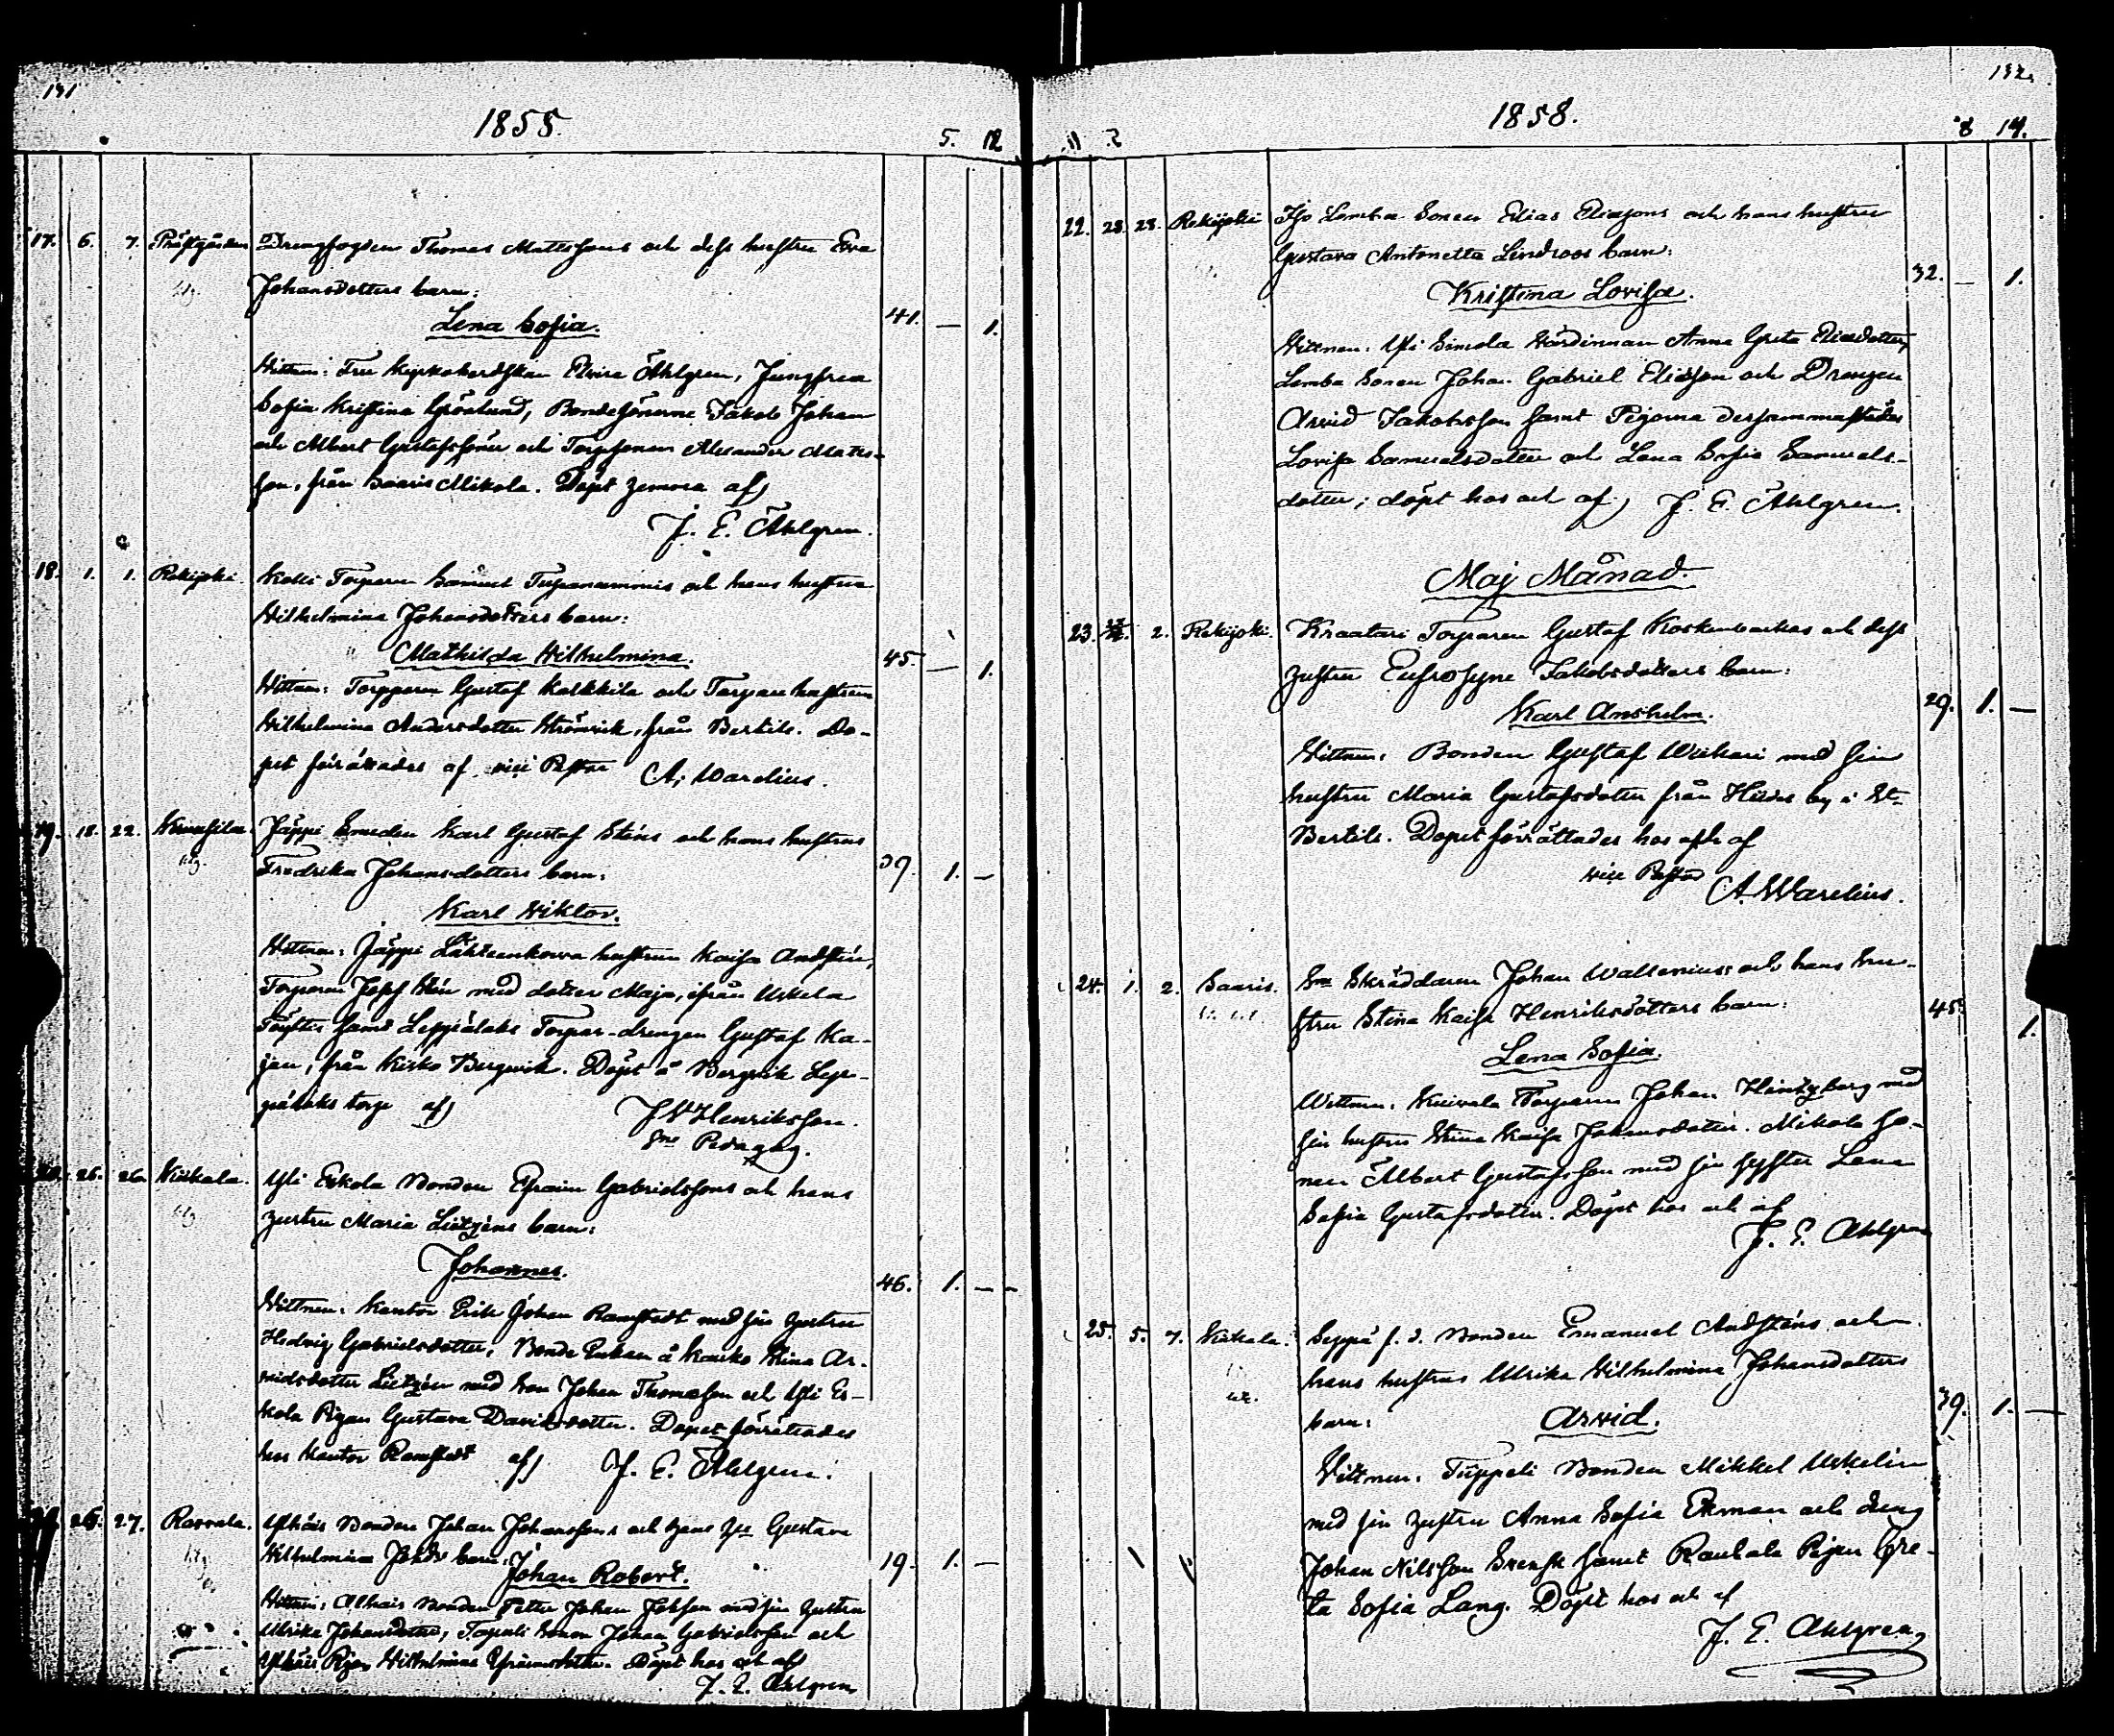 131
1858.
5. 12
17. 6. 7. Prästgården Drengfogden Thomas Mattssons och dess hustru Eva
Johansdotters barn:
Lena Sofia.
41. — 1.
Vittnen: Fru Kyrkoherdskan Elvira Åhlgren, Jungfrun
Sofia Kristina Grönlund, Bondesönerne Jakob Johan
och Albert Gustafssöner och Torpsonen Alexander Matts-
son, från Saaris Mikola. Döpt hemma af
J. E. Åhlgren.
18. 1. 1. Rekijoki. Torparen Samuel och hans hustru
Wilhelmina Johansdotters barn:
Mathilda Wilhelmina.
45. — 1.
Vittnen: Torparen Gustaf Kolkkila och Torpare hustrun
Wilhelmina Andersdotter Strömvik, från Bertils. Do-
pet förrättades af vice Pastor A. Warelius.
19. 18. 22. Jäppi Smeden Karl Gustaf Sténs och hans hustrus
Fredrika Johansdotters barn:
39. 1. —
Karl Viktor.
Vittnen: Jäppi hustrun Kaisa Andstén,
Torparen Josef Stén med dotter Maja, ifrån Uskela
samt Leppälaks Torpar-drengen Gustaf Ka-
jan, från Kisko Bergvik. Döpt å Bergvik Lep-
pälaks torp af J. W. Henriksson.
Pedagog.
20. 26. 26. Kiikala. Yli Eskola Bonden Efraim Gabrielssons och hans
hustru Maria Lietzéns barn:
Johannes.
46. 1. —
Vittnen: Kantor Erik Johan Ramstedt med sin hustru
Hedvig Gabrielsdotter, Bonde Enkan å Kauko Stina Ar-
vidsdotter Lietzén med Son Johan Thomasson och Yli Es-
kola Pigan Gustava Davidsdotter. Dopet förrättades
hos Kantor Ramstedt af J. E. Åhlgren.
26. 27. Rasvala. Bonden Johan Johanssons och hans Gustava
Wilhelmina barn:
Johan Robert.
19. 1. —
Vittnen: Bonden Petter Johan med sin hustru
Ulrika Johansdotter, Tapali Sonen Johan Gabrielsson och
Pigan Wilhelmina. Döpt hos och af
J. E. Åhlgren
132.
1858.
8 14.
22. 28. 28. Rekijoki Iso Lemba Sonen Elias Eliassons och hans hustru
Gustava Antonetta Lindroos barn:
32. — 1.
Kristina Lovisa.
Vittnen: Yli Simola Värdinnan Anna Greta Eliedotter,
Lemba Sonen Johan Gabriel Eliasson och Drengen
Arvid Jakobsson samt Pigorna dersammastädes
Lovisa Samuelsdotter och Lena Sofia Samuels-
dotter; döpt hos och af J. E. Åhlgren.
Maj Månad.
23. 2. Rekijoki. Kraatari Torparen Gustaf och dess
hustru Eufrosyne Jakobsdotters barn:
29. 1. —
Karl Anshelm.
Vittnen: Bonden Gustaf med sin
hustru Maria Gustafsdotter från by i St.
Bertils. Dopet förrättades hos och af
vice Pastor
A. Warelius.
24. 1. 2. Saaris. Skräddaren Johan Wallenius och hans hu-
stru Stina Kaisa Henriksdotters barn:
45. 1.
Lena Sofia.
Vittnen: Torparen Johan med
sin hustru Stina Kaisa Johansdotter. Mikola So-
nen Albert Gustafsson med sin syster Lena
Sofia Gustafsdotter. Döpt hos och af
J. E. Åhlgren
25. 5. 7. Kiikala. Seppä f. d. Bonden Emanuel Andsténs och
hans hustrus Ulrika Wilhelmina Johansdotters
barn: Arvid.
39. 1. —
Vittnen: Bonden Mikkel Uskelin
med sin hustru Anna Sofia Ekman och dreng
Johan Nilsson Svensk samt Raukala Pigan Gre-
ta Sofia Lang. Döpt hos och af
J. E. Åhlgren